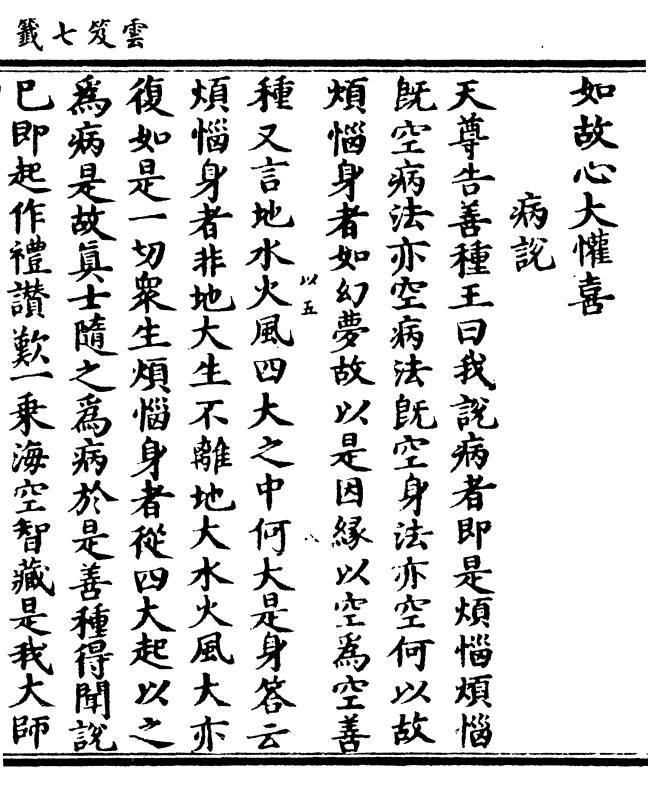 雲笈七籤
如故心大懽喜
病說
天尊告善種王曰我說病者即是煩惱煩惱
旣空病法亦空病法旣空身法亦空何以故
煩惱身者如幻夢故以是因緣以空爲空善
以五
種又言地水火風四大之中何大是身答云
煩惱身者非地大生不離地大水火風大亦
復如是一切衆生煩惱身者從四大起以之
爲病是故眞士隨之爲病於是善種得聞說
巳即起作禮讚歎一乘海空智藏是我大師